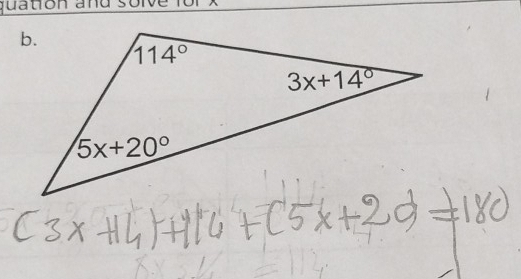 quation and solve for x
b.
114°
3x+14°
5x+20°
(3x+14)+114+(5x+20)=180